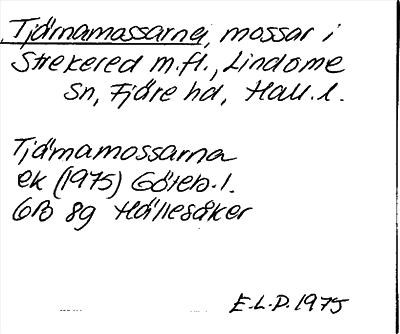 Tjärnamossarna, mossar i
Strekered m.fl., Lindome
sn, Fjäre hd, Hall. l.
Tjärnamossarna
ek (1975) Göteb. l.
6B 8g Hällesåker
E.L.P. 1975